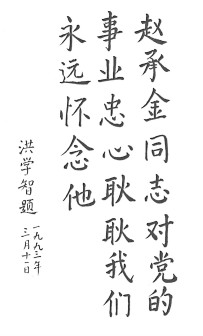 赵承金同志对党的
事业忠心耿耿我们
永远怀念他
洪学智题
一九九三年
三月十一日